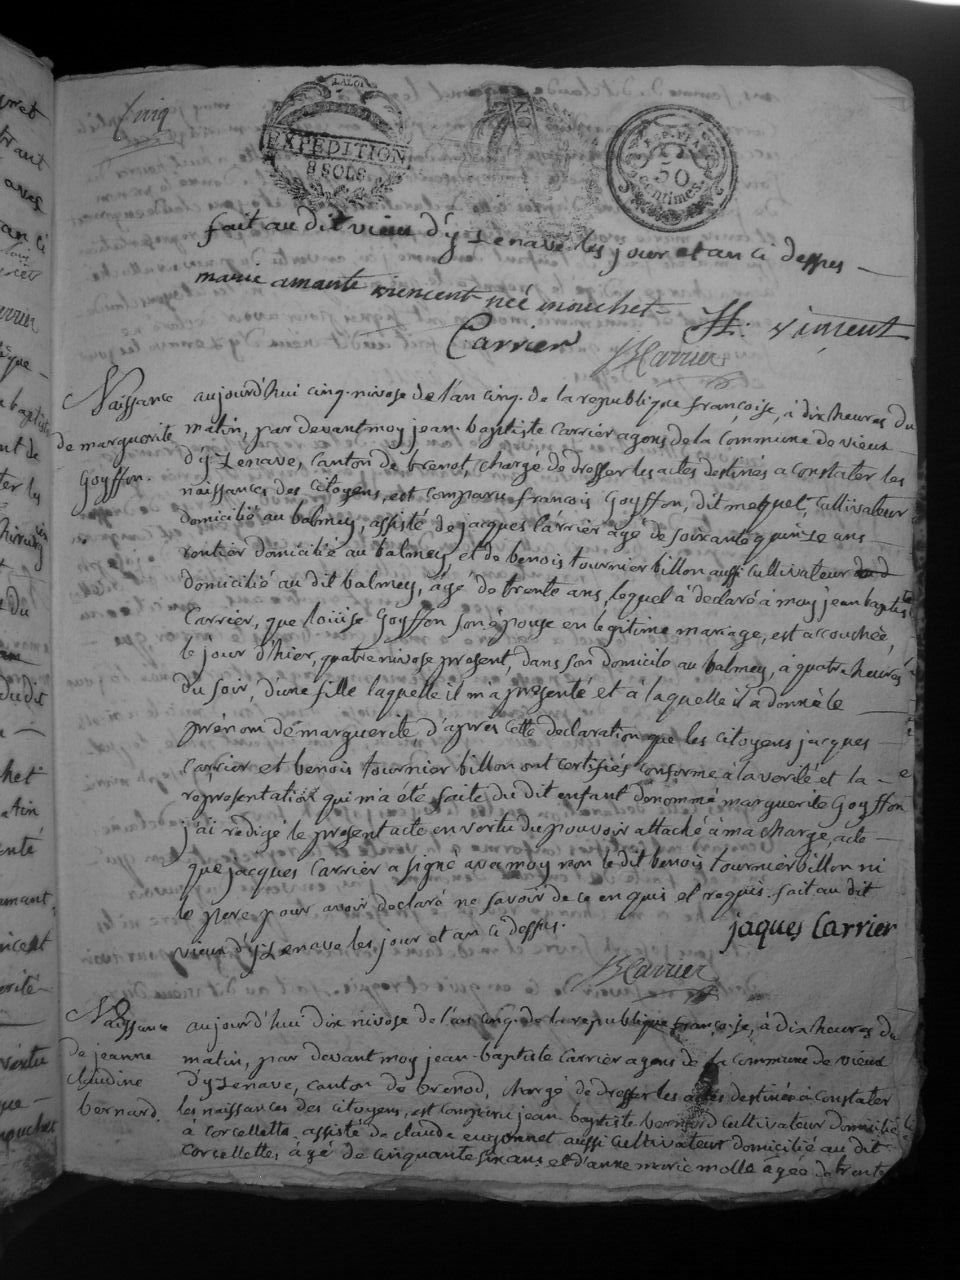 Cinq
LA LOI
EXPEDITION
8 SOLS
REP. FRA.
50
centimes.
fait au dit vieu d'yzenave les jour et an ci dessus
marie amante vincent née mouchet
vincent
Carrier
JBCarrier
Naissance
de marguerite
Goyffon.
aujourd'hui cinq nivose de l'an cinq de la republique françoise, à dix heures du
matin, par devant moy jean-baptiste Carrier agens de la commune de vieux
d'yzenave, canton de brenot, chargé de dresser les actes destinés a constater les
naissances des citoyens, est comparu francois Goyffon, dit mequet, Cultivateur
domicilié au balmey, assisté de jacques Carrier agé de soixante quinze ans
rentier domicilié au balmey, et de benois tournier billon aussi cultivateur
domicilié au dit balmey, âgé de trente ans, lequel a déclaré à moy jean baptiste
Carrier, que loüise Goyffon son épouse en légitime mariage, est accouchée
le jour d'hier, quatre nivose present, dans son domicile au balmey, à quatre heures
du soir, d'une fille laquelle il m'a presenté et à laquelle il a donné le
prénom de marguerite, d'apres cette declaration que les citoyens jacques
Carrier et benois tournier billon ont certifiés conforme à la verité et la
representation qui m'a été faite du dit enfant dénommé marguerite Goyffon
j'ai redigé le present acte en vertu du pouvoir attaché à ma charge, acte
que jacques Carrier a signé avec moy non le dit benois tournier billon ni
le pere pour avoir declaré ne savoir de ce enquis et requis. fait au dit
vieux d'yzenave les jour et an ci dessus.
jaques Carrier
JBCarrier
Naissance
de jeanne
claudine
bernard
aujourd'hui dix nivose de l'an cinq de la republique françoise, à dix heures du
matin, par devant moy jean-baptiste Carrier agens de la commune de vieux
d'yzenave, canton de brenod, chargé de dresser les actes destinés à constater
les naissances des citoyens, est comparu jean baptiste bernard cultivateur domicilié
à corcellette, assisté de claude aussi cultivateur domicilié au dit
corcellette, âgé de cinquante six ans, et d'anne marie molle âgée de trente